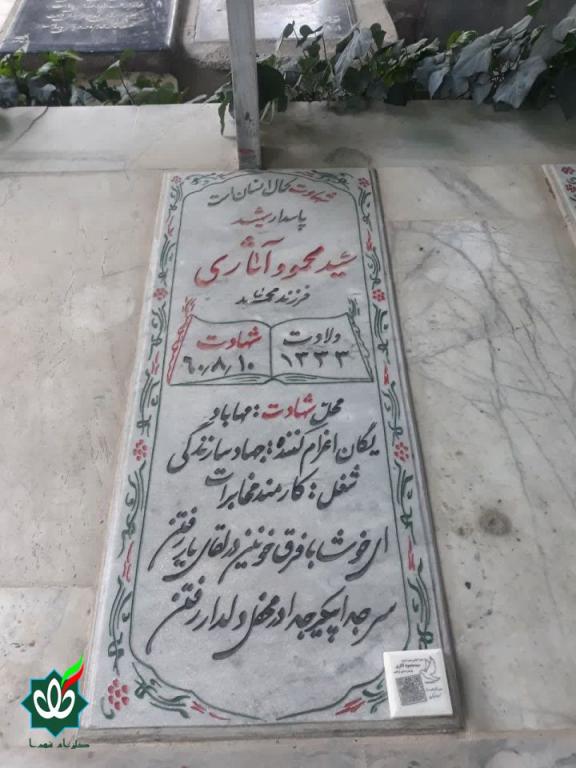 شهادت کمال انسان است
پاسدار شهید
سید محمود آثاری
فرزند
ولادت
۱۳۳۳
شهادت
۶۰/۸/۱۰
محل شهادت : مهاباد
یگان اعزام کننده : جهاد سازندگی
شغل : کارمند مخابرات
ای خوشا با فرق خونین در لقای یار رفتن
سر جدا پیکر جدا در محفل دلدار رفتن